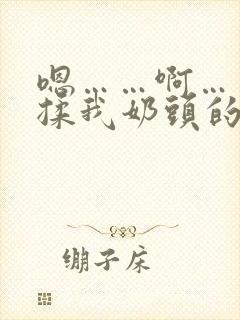 嗯……啊…
揉我奶頭的
绷子床